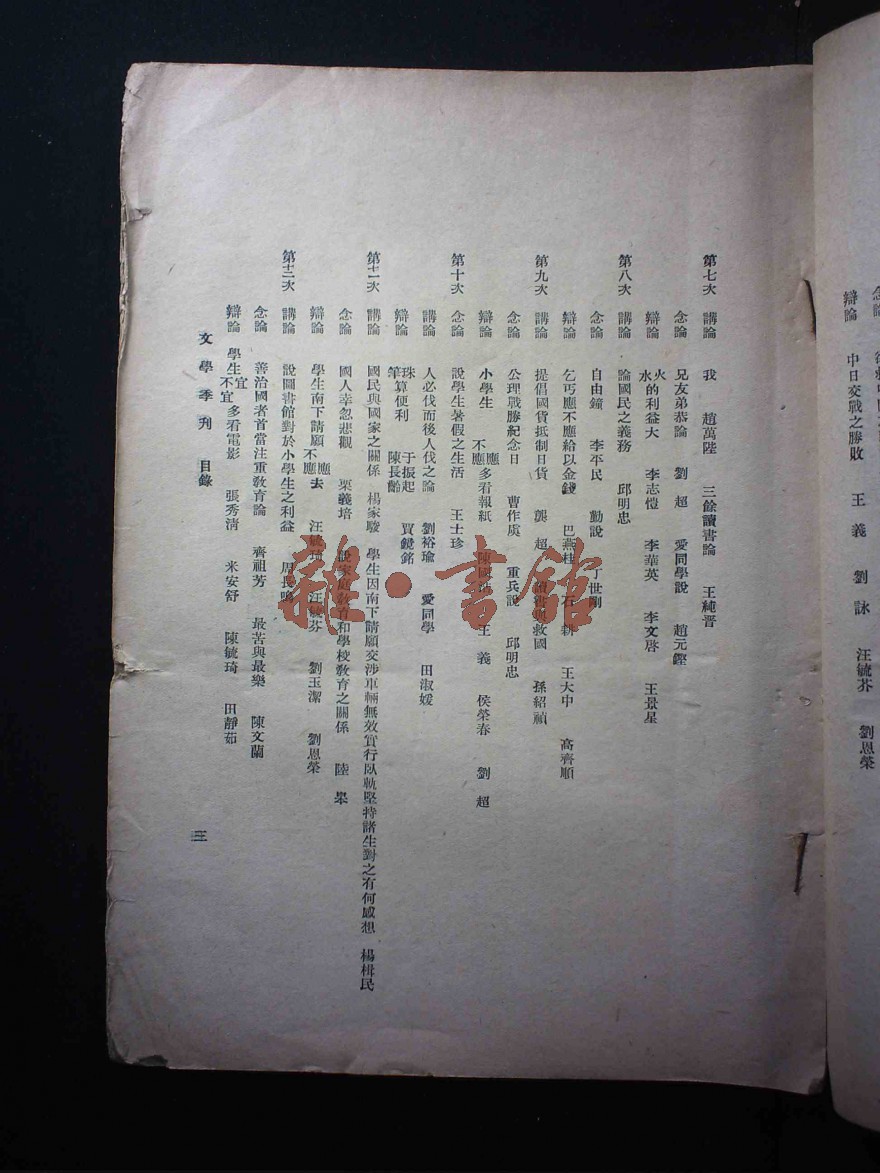 第七次　講論　我　趙萬陞　三餘讀書論　王純晋
念論　兄友弟恭論　劉超　愛同學說　趙元鏗
辯論　火水的利益大　李志愷　李華英　李文啓　王景星
第八次　講論　論國民之義務　邱明忠
念論　自由鐘　李平民　勤說　丁世剛
辯論　乞丐應不應給以金錢　巴燕桂　石耕　王大中　高齊順
第九次　講論　提倡國貨抵制日貨　龔超　讀書與救國　孫紹禎
念論　公理戰勝紀念日　曹作虞　重兵說　邱明忠
辯論　小學生應不應多看報紙　陳國　王義　侯榮春　劉超
第十次　念論　說學生暑假之生活　王士珍
講論　人必伐而後人伐之論　劉裕瑜　愛同學　田淑媛
辯論　珠筆算便利　于振起　陳長齡　賈鏡銘
第十一次　講論　國民與國家之關係　楊家駿　學生因南下請願交涉車輛無效實行臥軌堅持諸生對之有何感想　楊楫民
念論　國人幸忽悲觀　栗義培　說家庭教育和學校教育之關係　陸皋
辯論　學生南下請願應不應去　汪毓琦　汪毓芬　劉玉潔　劉恩榮
第十二次　講論　說圖書館對於小學生之利益　周長鳴
念論　善治國者首當注重敎育論　齊祖芳　最苦與最樂　陳文蘭
辯論　學生宜不宜多看電影　張秀清　米安舒　陳毓琦　田靜茹
文學季刊　目錄
三
辯論　中日交戰之勝敗　王義　劉詠　汪毓芬　劉恩榮
雜·書館